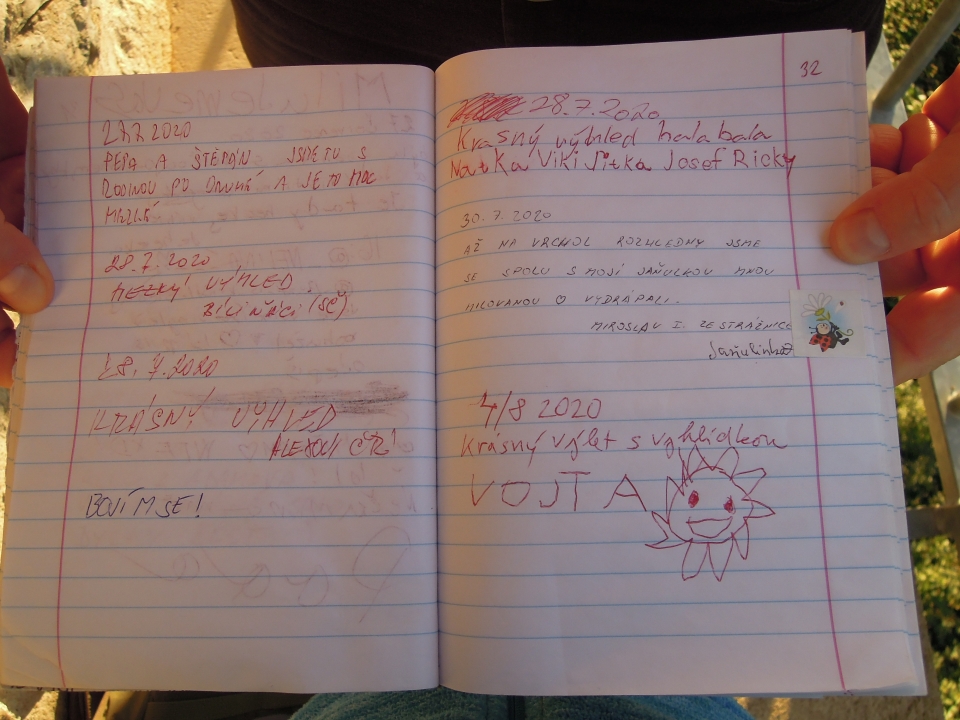 27.7.2020
PEPA A ŠTĚPÁN JSME TU S
RODINOU PO DRUHÉ A JE TO MOC
HEZKÉ
28.7.2020
HEZKÝ VÝHLED
BÍLIŇÁCI (SČ)
28.7.2020
KRÁSNÝ VÝHLED
ALEXOVI
BOJÍM SE!
32
28.7.2020
Krasný výhled halabala
Natka Viki Jitka Josef Ricky
30.7.2020
AŽ NA VRCHOL ROZHLEDNY JSME
SE SPOLU S MOJÍ JAŇULKOU MNOU
MILOVANOU ♡ VYDRÁPALI.
MIROSLAV I. ZE STRÁŽNICE
Jaňulinka
4/8 2020
Krásný výlet s vyhlídkou
VOJTA